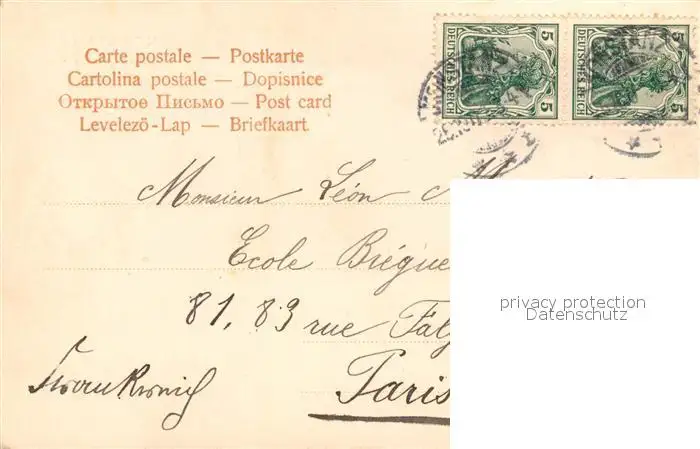 Carte postale — Postkarte
Cartolina postale — Dopisnice
Открытое Письмо — Post card
Levelező-Lap — Briefkaart
5 DEUTSCHES REICH 5
5 DEUTSCHES REICH 5
Monsieur Léon
Ecole Brégue
81, 83 rue Falg
Paris
privacy protection
Datenschutz